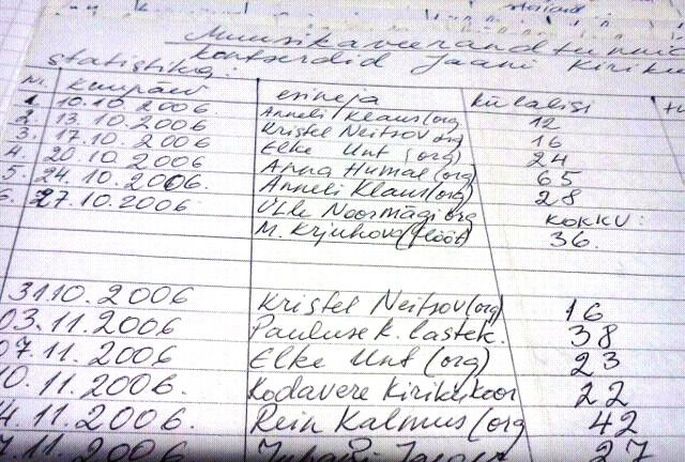 Muusikaveerandtunnid
kontserdid Jaani Kiriku
statistika:
Nr. Kuupäev esineja külalisi
1. 10.10.2006 Anneli Klaus(org 12
2. 13.10.2006 Kristel Neitsov org 16
3. 17.10.2006 Elke Unt (org) 24
4. 20.10.2006 Anna Humal (org) 65
5. 24.10.2006. Anneli Klaus(org) 28
6. 27.10.2006 Ülle Noormägi org KOKKU:
M. Krjukova (flööt) 36.
31.10.2006 Kristel Neitsov (org) 16
03.11.2006 Pauluse k. lastek. 38
07.11.2006 Elke Unt (org) 23
10.11.2006. Kodavere Kirikukoor 22
14.11.2006. Rein Kalmus (org 42
.11.2006 27